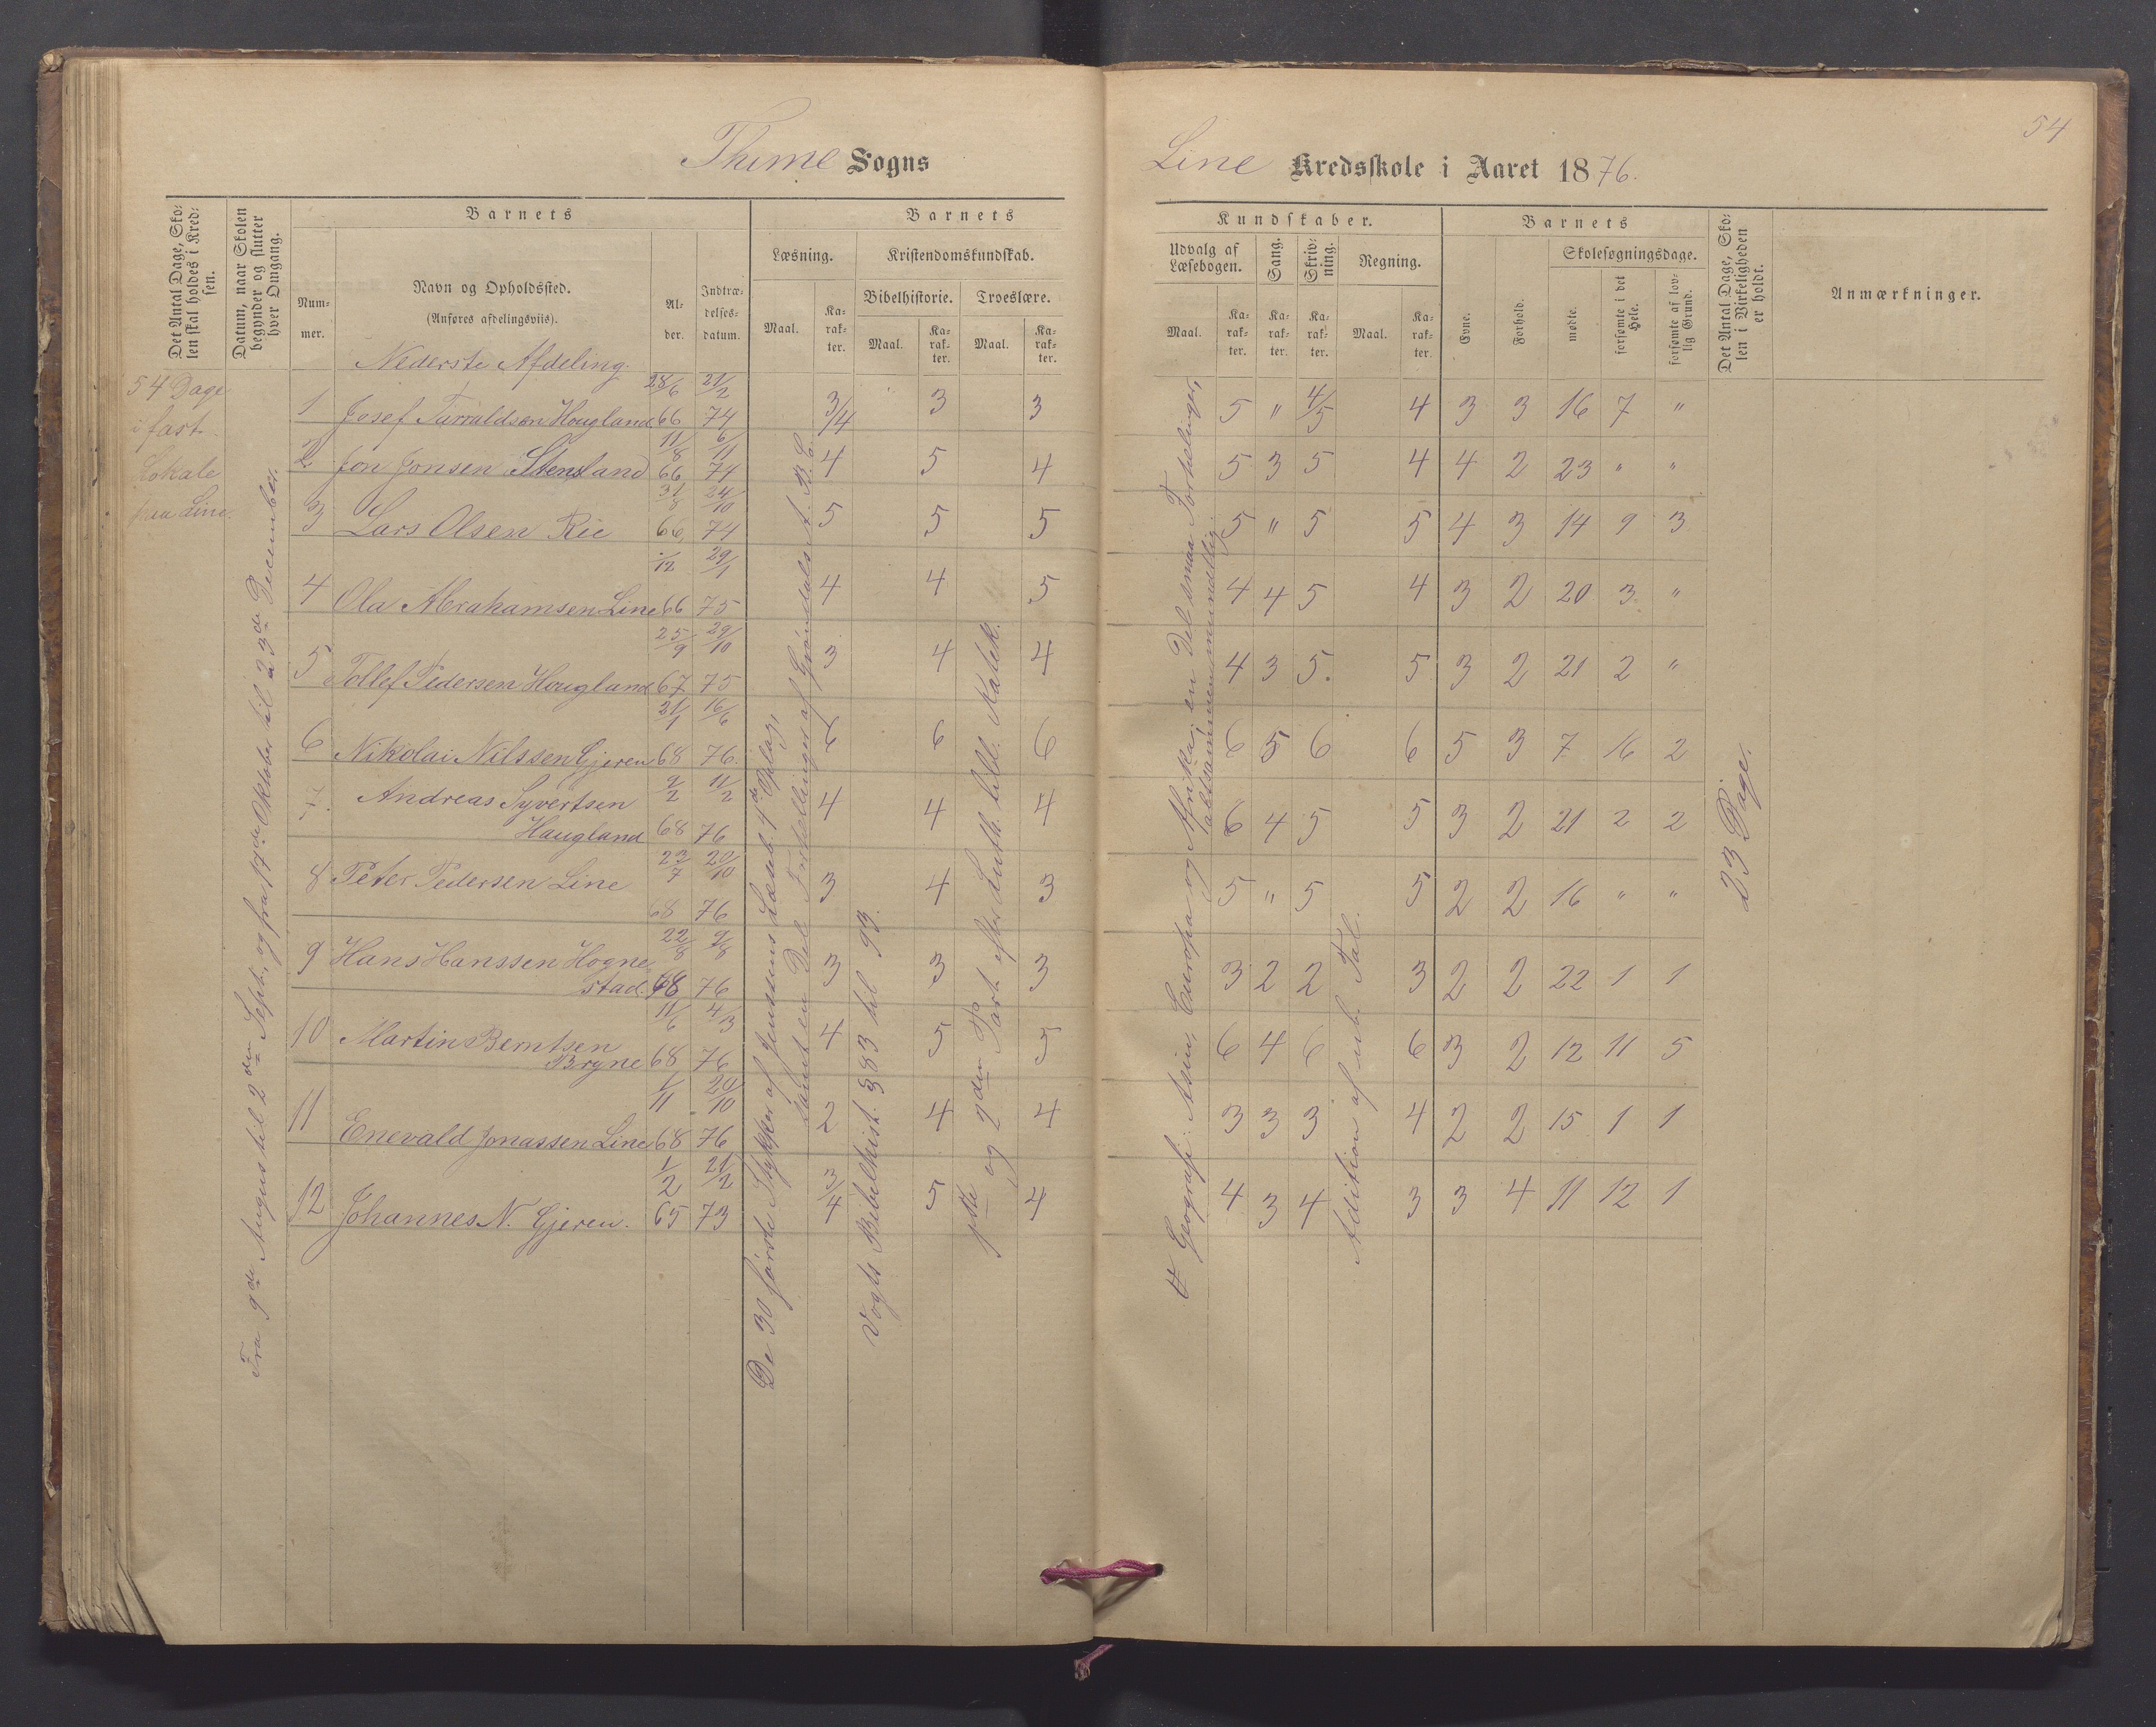 54
Thime Sogns
Line Kredsskole i Aaret 1876.
Det Antal Dage, Sko-
len skal holdes i Kred-
sen.
Datum, naar Skolen
begynder og slutter
hver Omgang.
Barnets
Num-
mer.
Navn og Opholdssted.
(Anføres afdelingsviis).
Al-
der.
Indtræ-
delses-
datum.
Barnets
Læsning.
Kristendomskundskab.
Bibelhistorie. Troeslære.
Maal. Ka-
rak-
ter.
Maal. Ka-
rak-
ter.
Maal. Ka-
rak-
ter.
Kundskaber.
Udvalg af
Læsebogen.
Sang.
Skriv-
ning.
Regning.
Maal. Ka-
rak-
ter.
Ka-
rak-
ter.
Ka-
rak-
ter.
Maal. Ka-
rak-
ter.
Barnets
Evne.
Forhold.
Skolesøgningsdage.
mødte.
forsømte i det
Hele.
forsømte af lov-
lig Grund.
Det Antal Dage, Sko-
len i Virkeligheden
er holdt.
Anmærkninger.
Nederste Afdeling
54 Dage
i fast
Lokale
paa Line.
Fra 9de August til 2den Septb., og fra 17de Oktober til 23de December.
1 Josef Tarraldsen Hougland 28/6 66 21/2 74 3/4 3 3 5 " 4/5 4 3 3 16 7 "
2 Jon Jonsen Stensland 11/8 66 6/11 74 4 5 4 5 3 5 4 4 2 23 " "
3 Lars Olsen Rie 31/8 66 24/10 74 5 5 5 5 " 5 5 4 3 14 9 3
4 Ola Abrahamsen Line /12 66 29/1 75 4 4 5 4 4 5 4 3 2 20 3 "
5 Tollef Pedersen Hougland 25/9 67 29/10 75 3 4 4 4 3 5. 5 3 2 21 2 "
6 Nikolai Nilssen Gjeren 21/1 68 16/6 76. 6 6 6 6 5 6 6 5 3 7 16 2
7. Andreas Syvertsen
Haugland 2/2 68 11/2 76 4 4 4 6 4 5 5 3 2 21 2 2
8 Peter Pedersen Line 23/7 68 20/10 76 3 4 3 5 " 5 5 2 2 16 " "
9 Hans Hanssen Hogne
stad. 22/8 68 9/8 76 3 3 3 3 2 2 3 2 2 22 1 1
10 Martin Berntsen
Bryne 11/6 68 4/3 76 4 5 5 6 4 6 6 3 2 12 11 5
11 Enevald Jonassen Line 1/11 68 20/10 76 2 4 4 3 3 3 4 2 2 15 1 1
12 Johannes N. Gjeren. 1/2 65 21/2 73 3/4 5 4 4 3 4 3 3 4 11 12 1
De 30 første Stykker af Jenssens Læseb. 4de Oplag,
samt en Del Fortellinger af Grøndals A. B. C.
Vogts Bibelhist. 383 til 93.
1ste og 2den Part efter Luth. lill. Katek.
Geografi: Asien, Europa og Afrika; en Del smaa Fortelinger,
altsammen mundtlig.
Adition af ub. Tal.
23 Dage.